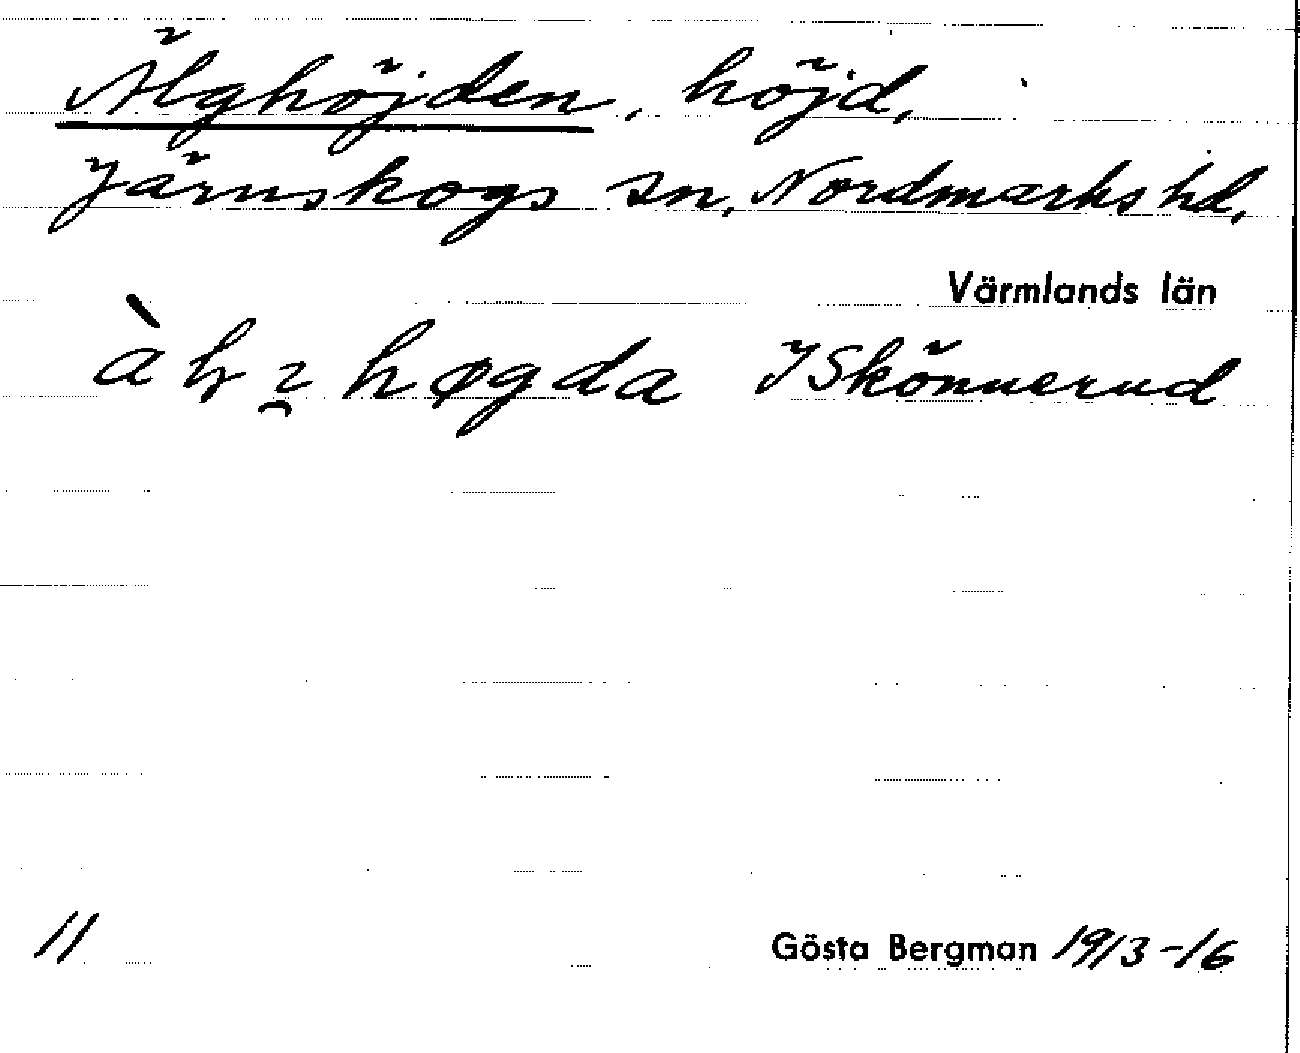 Älghöjden, höjd,
Järnskogs sn, Nordmarks hd,
Värmlands län
högda I Skönnerud
11 Gösta Bergman 1913-16